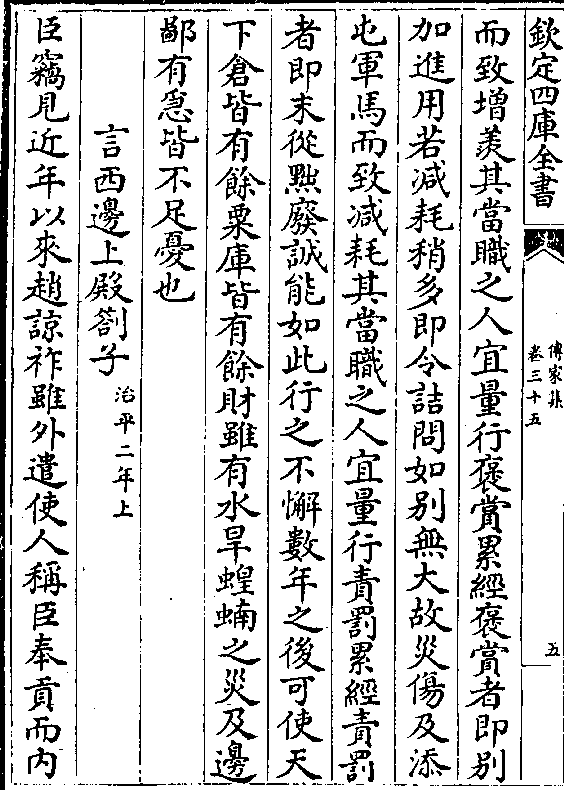 欽定四庫全書
傳家集
卷三十五
五
而致增羨其當職之人宜量行褒賞累經褒賞者即别
加進用若減耗稍多即令詰問如别無大故災傷及添
屯軍馬而致減耗其當職之人宜量行責罰累經責罰
者即末從㸃廢誠能如此行之不懈數年之後可使天
下倉皆有餘粟庫皆有餘財雖有水旱蝗蝻之災及邊
鄙有急皆不足憂也
言西邊上殿劄子治平二年上
臣竊見近年以來趙諒祚雖外遣使人稱臣奉貢而内